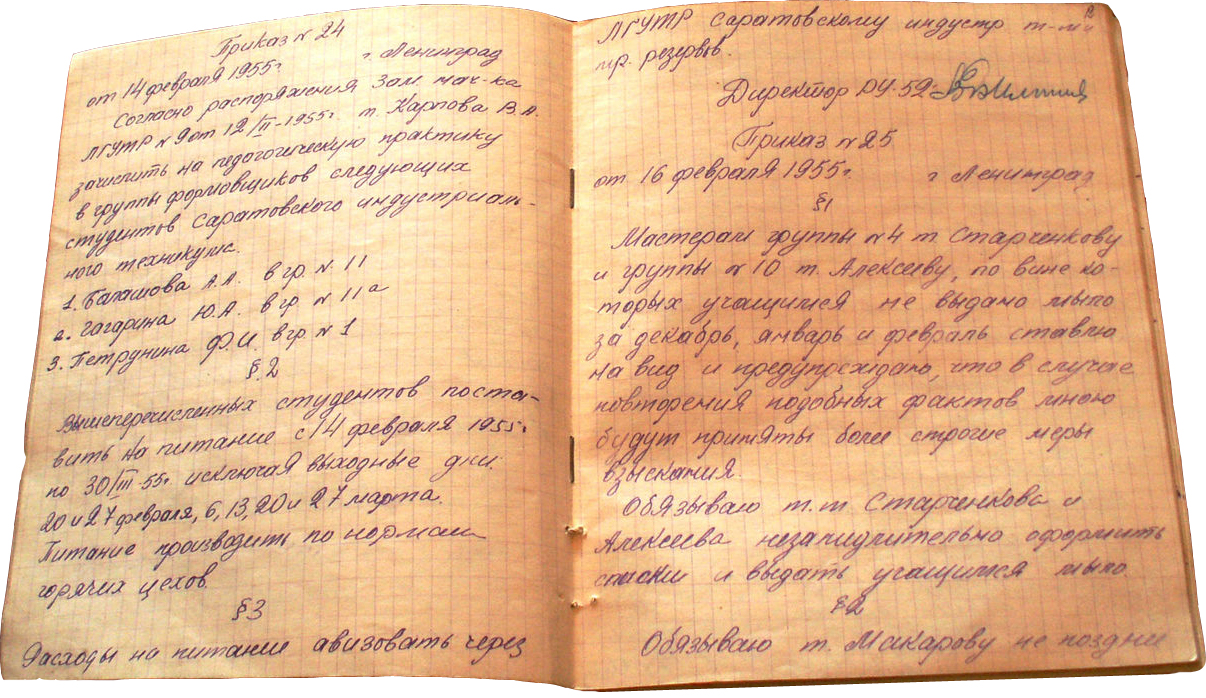 Приказ № 24
от 14 февраля 1955г. г. Ленинград
Согласно распоряжения Зам. нач-ка
ЛГУТР № 9 от 12/II-1955г. т. Карпова В.А.
зачислить на педогогическую практику
в группы формовщиков следующих
студентов Саратовского индустриаль-
ного техникума.
1. Балашова А.А. в гр. № 11
2. Гагарина Ю.А. в гр № 11а
3. Петрунина Ф.И. в гр № 1
§.2
Вышеперечисленных студентов поста-
вить на питание с 14 февраля 1955г.
по 30/III-55г исключая выходные дни.
20 и 27 февраля, 6, 13, 20 и 27 марта.
Питание производить по нормам
горячих цехов.
§3
Расходы на питание авизовать через
ЛГУТР Саратовскому индустр т-му
тр. резервов.
Директор РУ-52
Приказ № 25
от 16 февраля 1955г. г Ленинград
§1
Мастерам группы №4 т. Старченкову
и группы № 10 т. Алексееву, по вине ко-
торых учащимся не выдано мыло
за декабрь, январь и февраль ставлю
на вид и предупреждаю, что в случае
повторения подобных фактов мною
будут приняты более строгие меры
взыскания.
Обязываю т.т. Старченкова и
Алексеева незамидлительно оформить
списки и выдать учащимся мыло.
§2
Обязываю т. Макарову не поздние